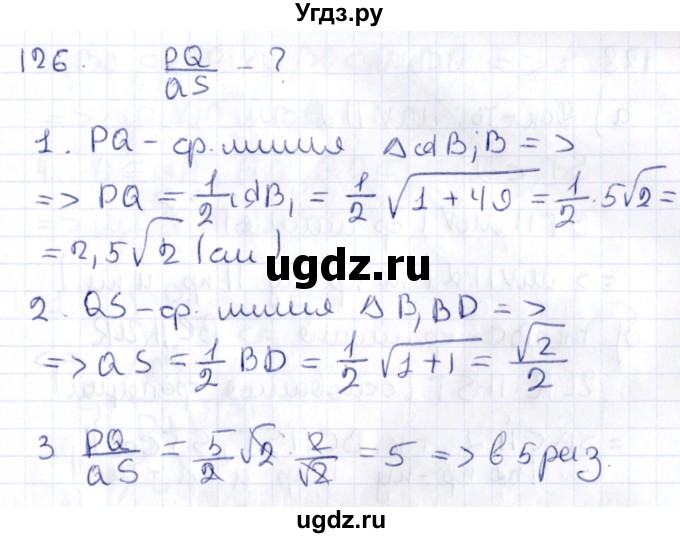 Угдз.ру
126. PQ/QS - ?
1. PQ - ср. линия ΔdB₁B =>
=> PQ = 1/2 dB₁ = 1/2 √(1+49) = 1/2 · 5√2 =
= 2,5√2 (см)
ugdz.ru
2. QS - ср. линия Δ B₁BD =>
=> QS = 1/2 BD = 1/2 √(1+1) = √2/2
3 PQ/QS = 5/2 √2 · 2/√2 = 5 => в 5 раз.
ugdz.ru